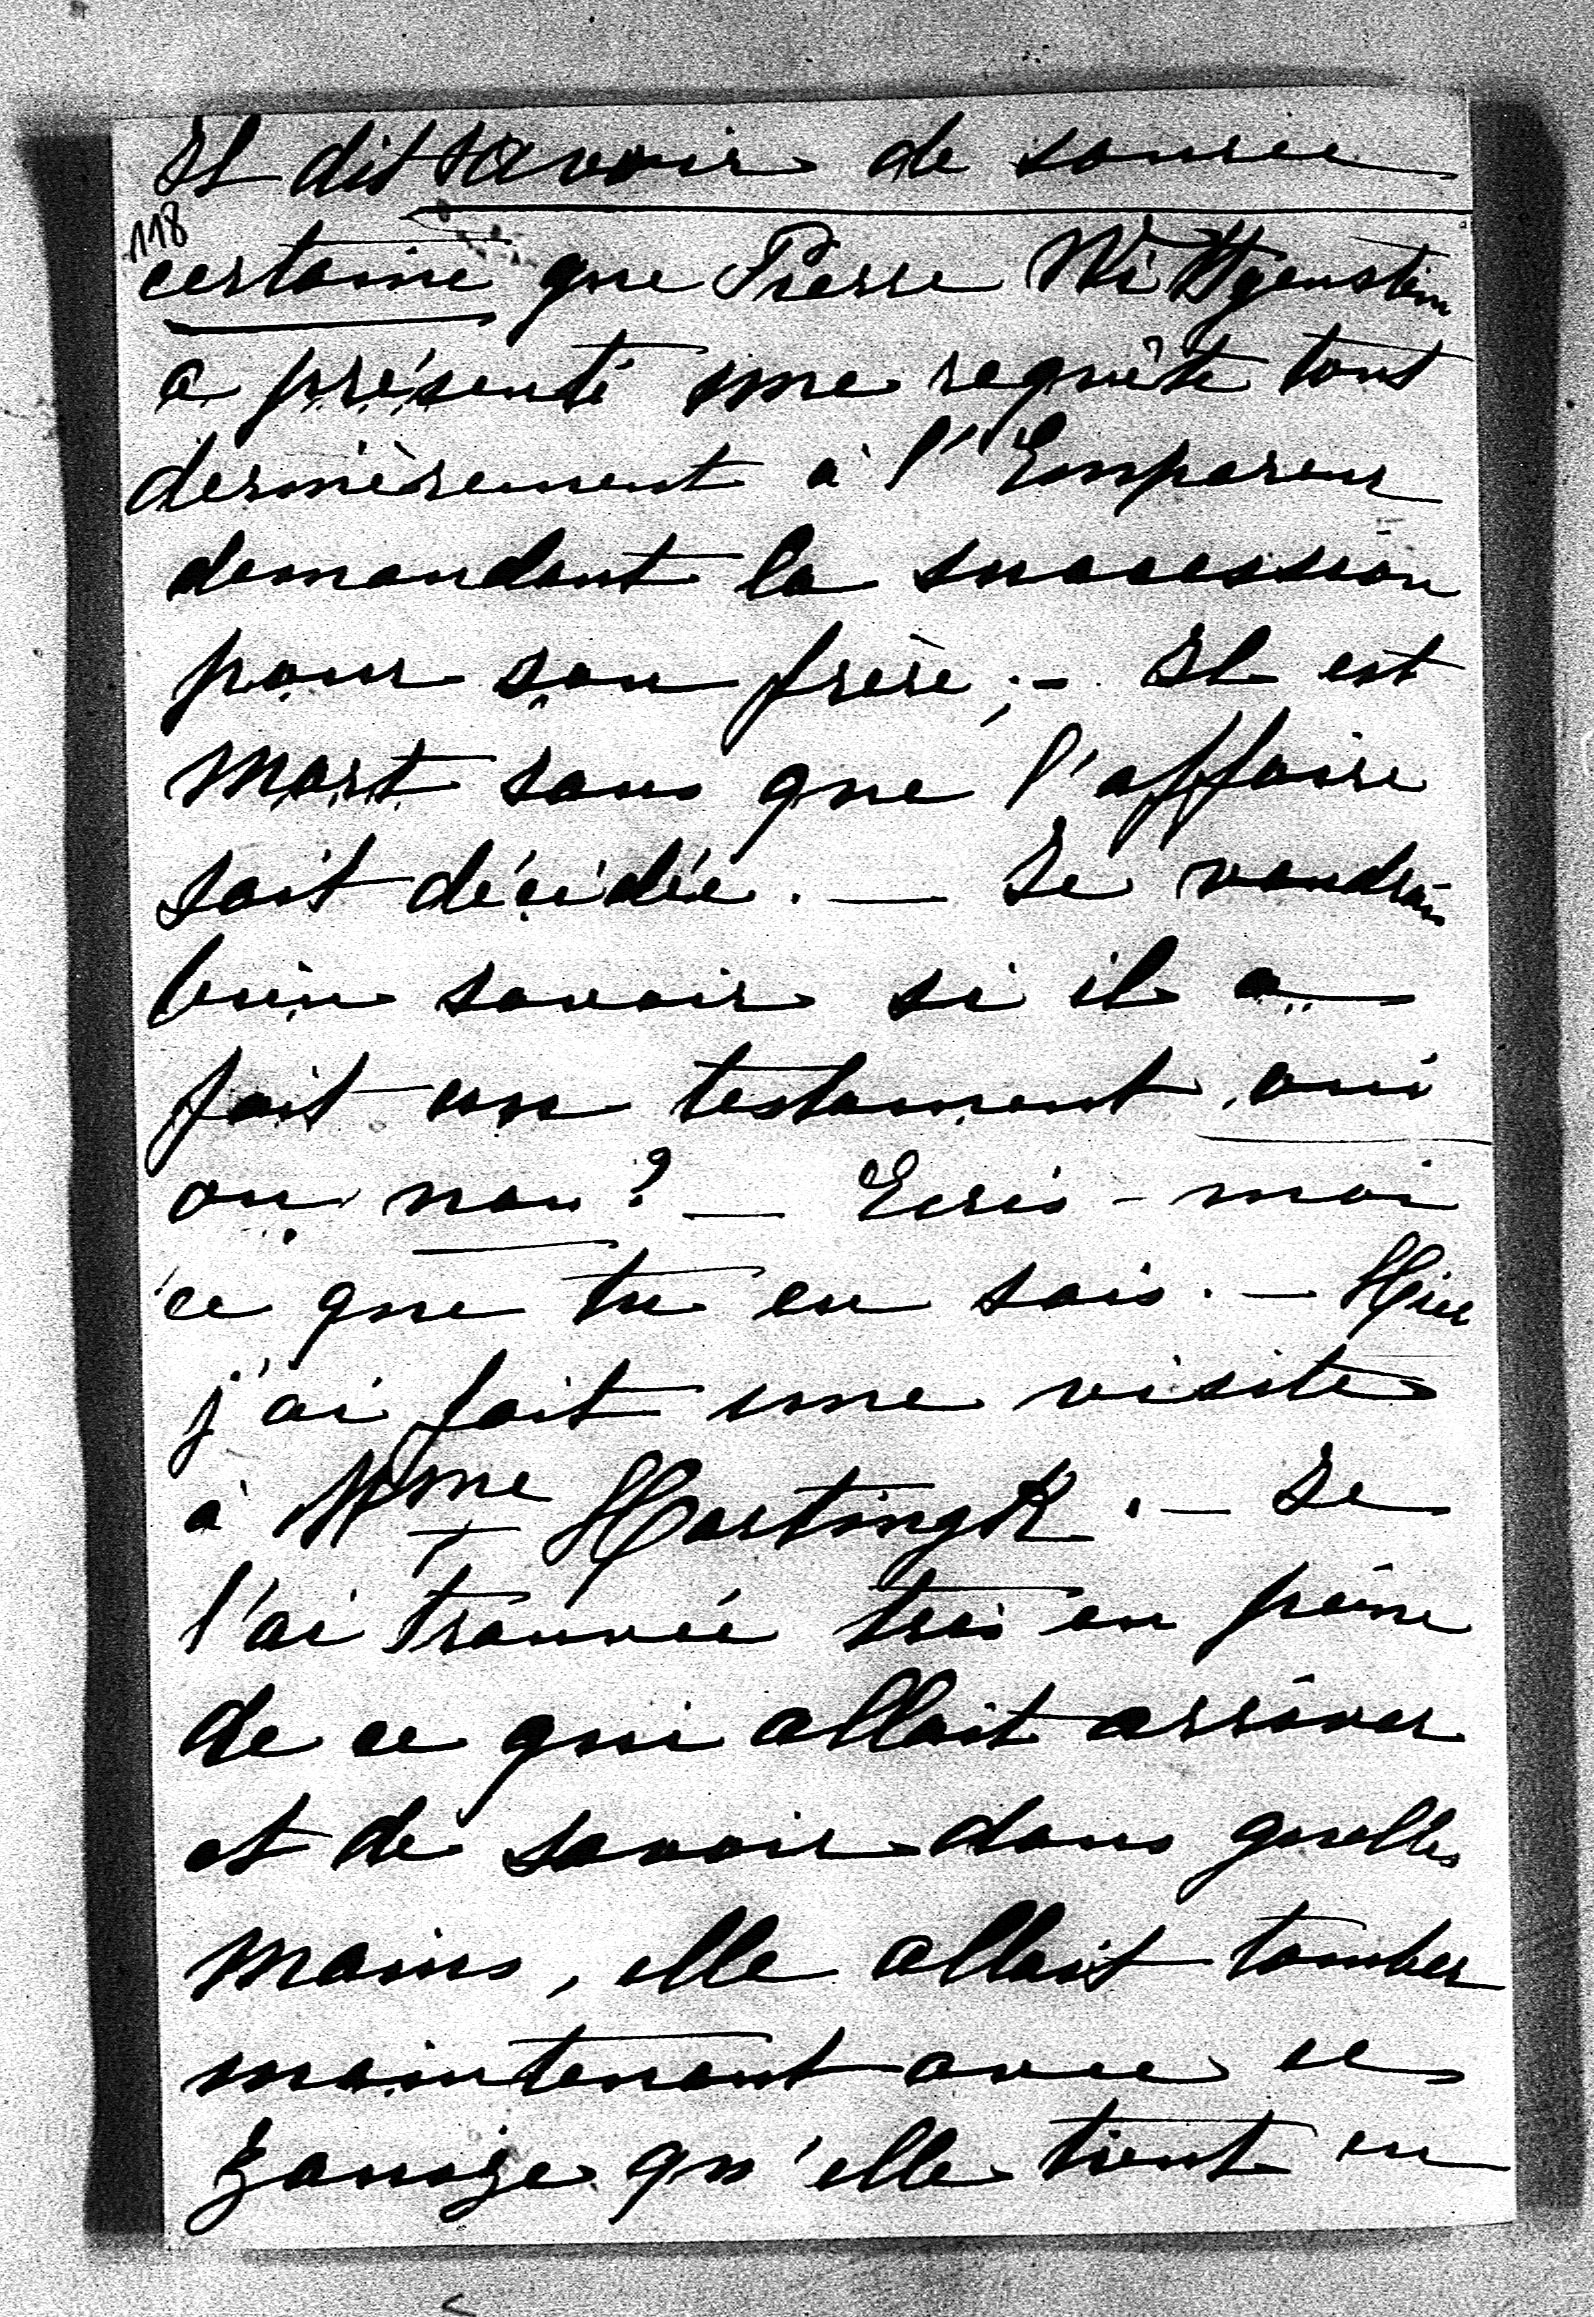 Il dit savoir de source
118
certaine que Pierre Wittgenstein
a présenté une requête tout
dernièrement à l'Empereur
demandant la succession
pour son frère; – Il est
mort sans que l'affaire
soit décidée. — Je voudrais
bien savoir si il a
fait un testament, oui
ou non? — Ecris-moi
ce que tu en sais. — Hier
j'ai fait une visite
à Mme Hartingk. — Je
l'ai trouvée très en peine
de ce qui allait arriver
et de savoir dans quelles
mains, elle allait tomber
maintenant avec ce
qu'elle tient en